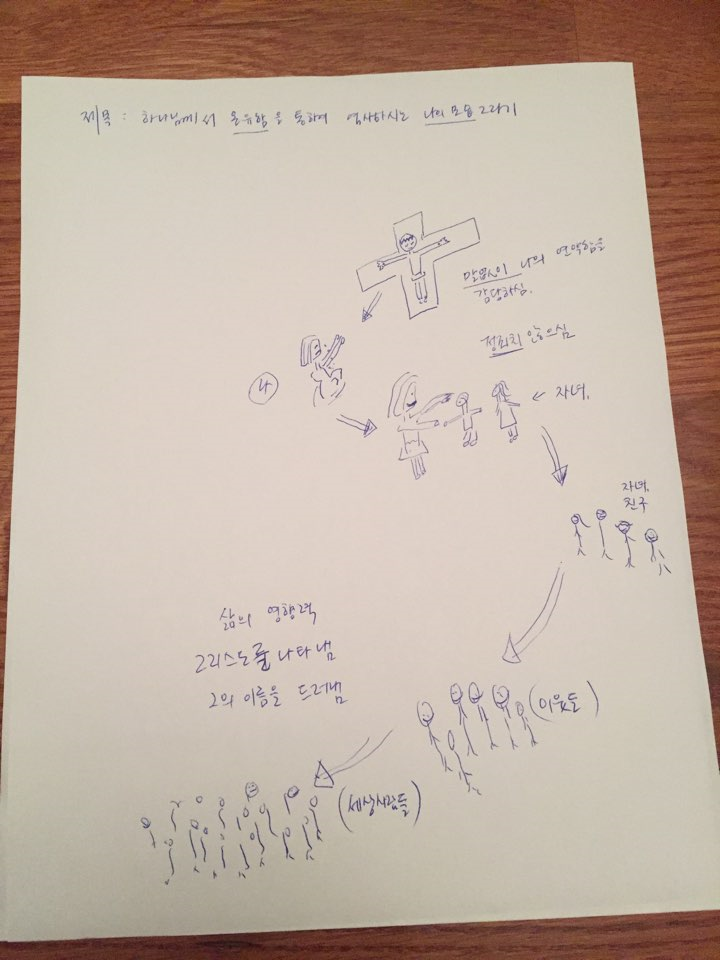 제목 : 하나님께서 온유함을 통하여 역사하시는 나의 모습 그리기
말없이 나의 연약함을
감당하심.
정죄치 않으심
나
← 자녀.
자녀.
친구
삶의 영향력
그리스도를 나타냄
그의 이름을 드러냄
(이웃들)
(세상사람들)